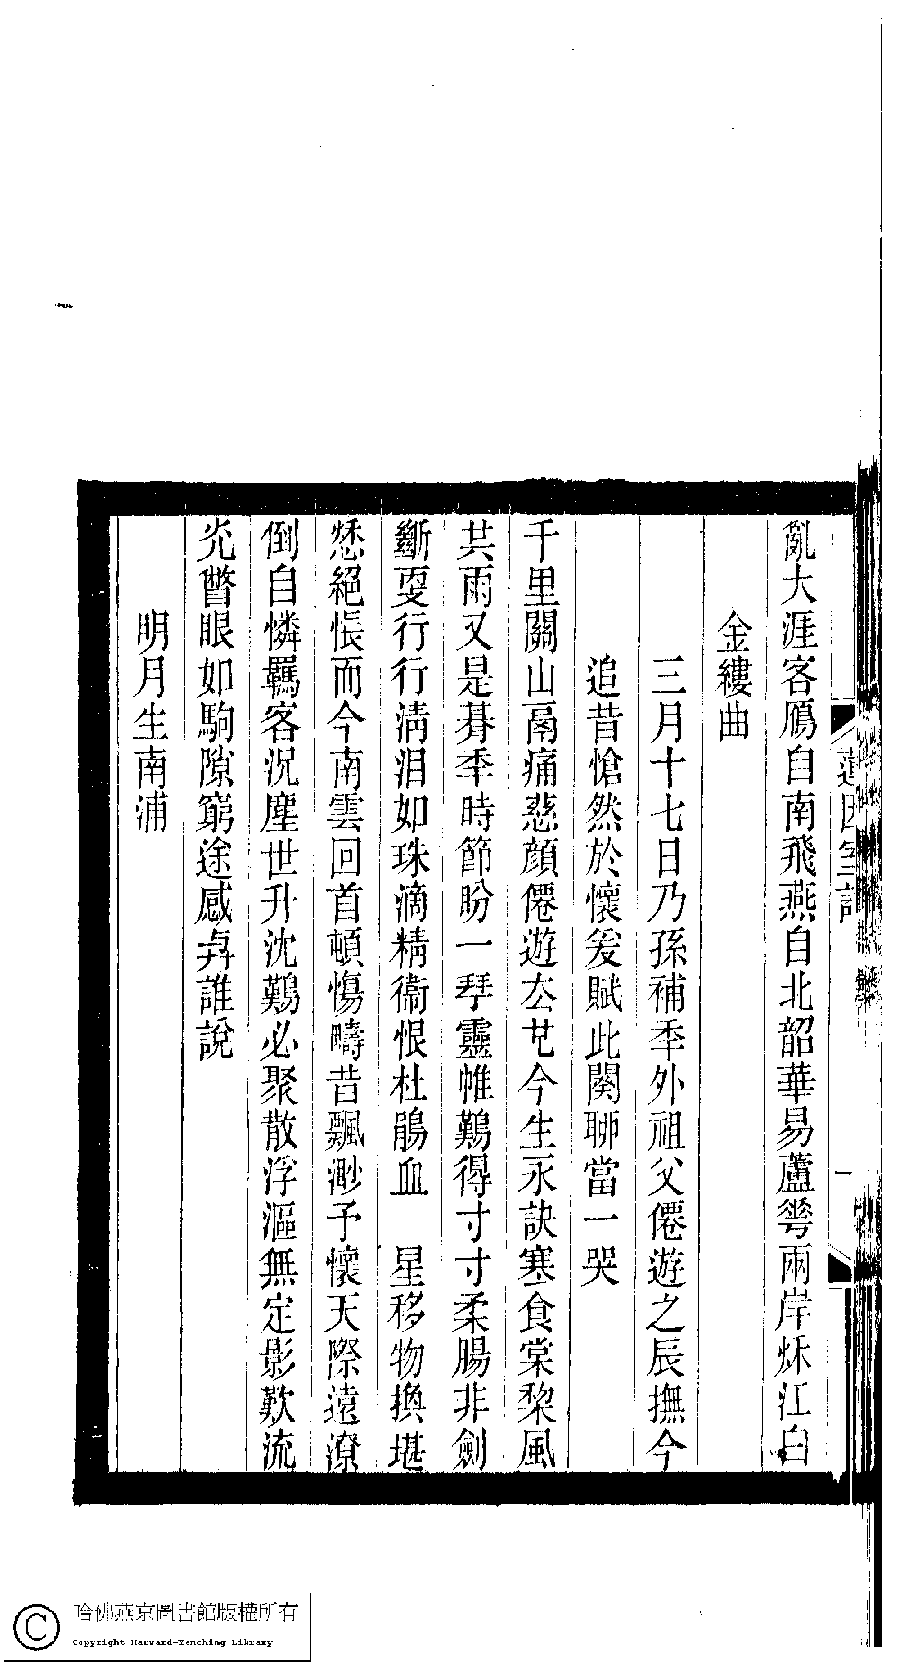 亂天涯客鴈自南飛燕自北韶華易蘆雩兩岸烁江白
金縷曲
三月十七日乃孫補秊外祖父僊遊之辰撫今
追昔愴然於懷爰賦此闋聊當一哭
千里關山鬲痛慈顔僊遊厺也今生永訣寒食棠棃風
共雨又是朞秊時節盼一琴靈帷鷬得寸寸柔腸非劍
斷耎行行淸泪如珠滴精衞恨杜鵑血　星移物換堪
愁絕悵而今南雲回首頓慯疇昔飄渺予懷天際遠潦
倒自憐羈客況塵世升沈鷬必聚散浮漚無定影歎流
灮瞥眼如駒隙窮途感弆誰說
明月生南浦
蓮因室詞
一
哈佛燕京圖書館版權所有
Copyright Harvard-Yenching Library